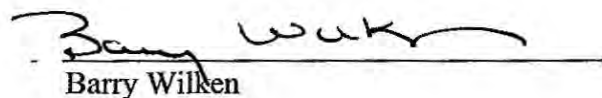 Barry Wilken
Barry Wilken